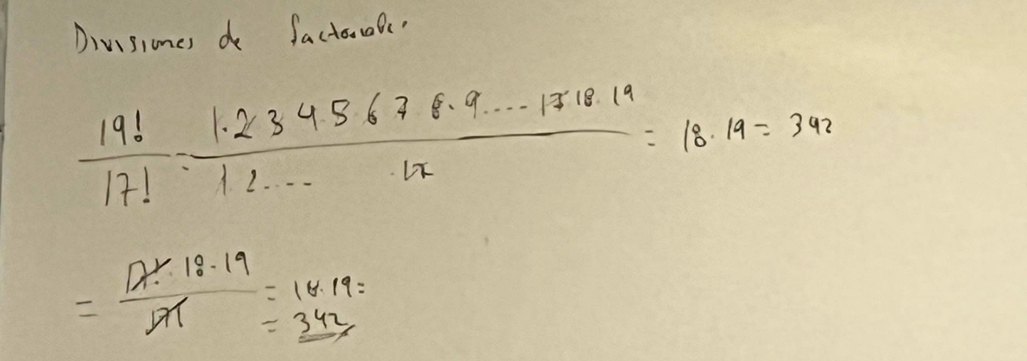 Divisiones de factoriales.
19! / 17! = 1.2 3 4.5 6 7 8.9.... 17 18. 19 / 1 2.... .17 = 18. 19 = 342
= 17!. 18.19 / 17! = 18.19=
= 342